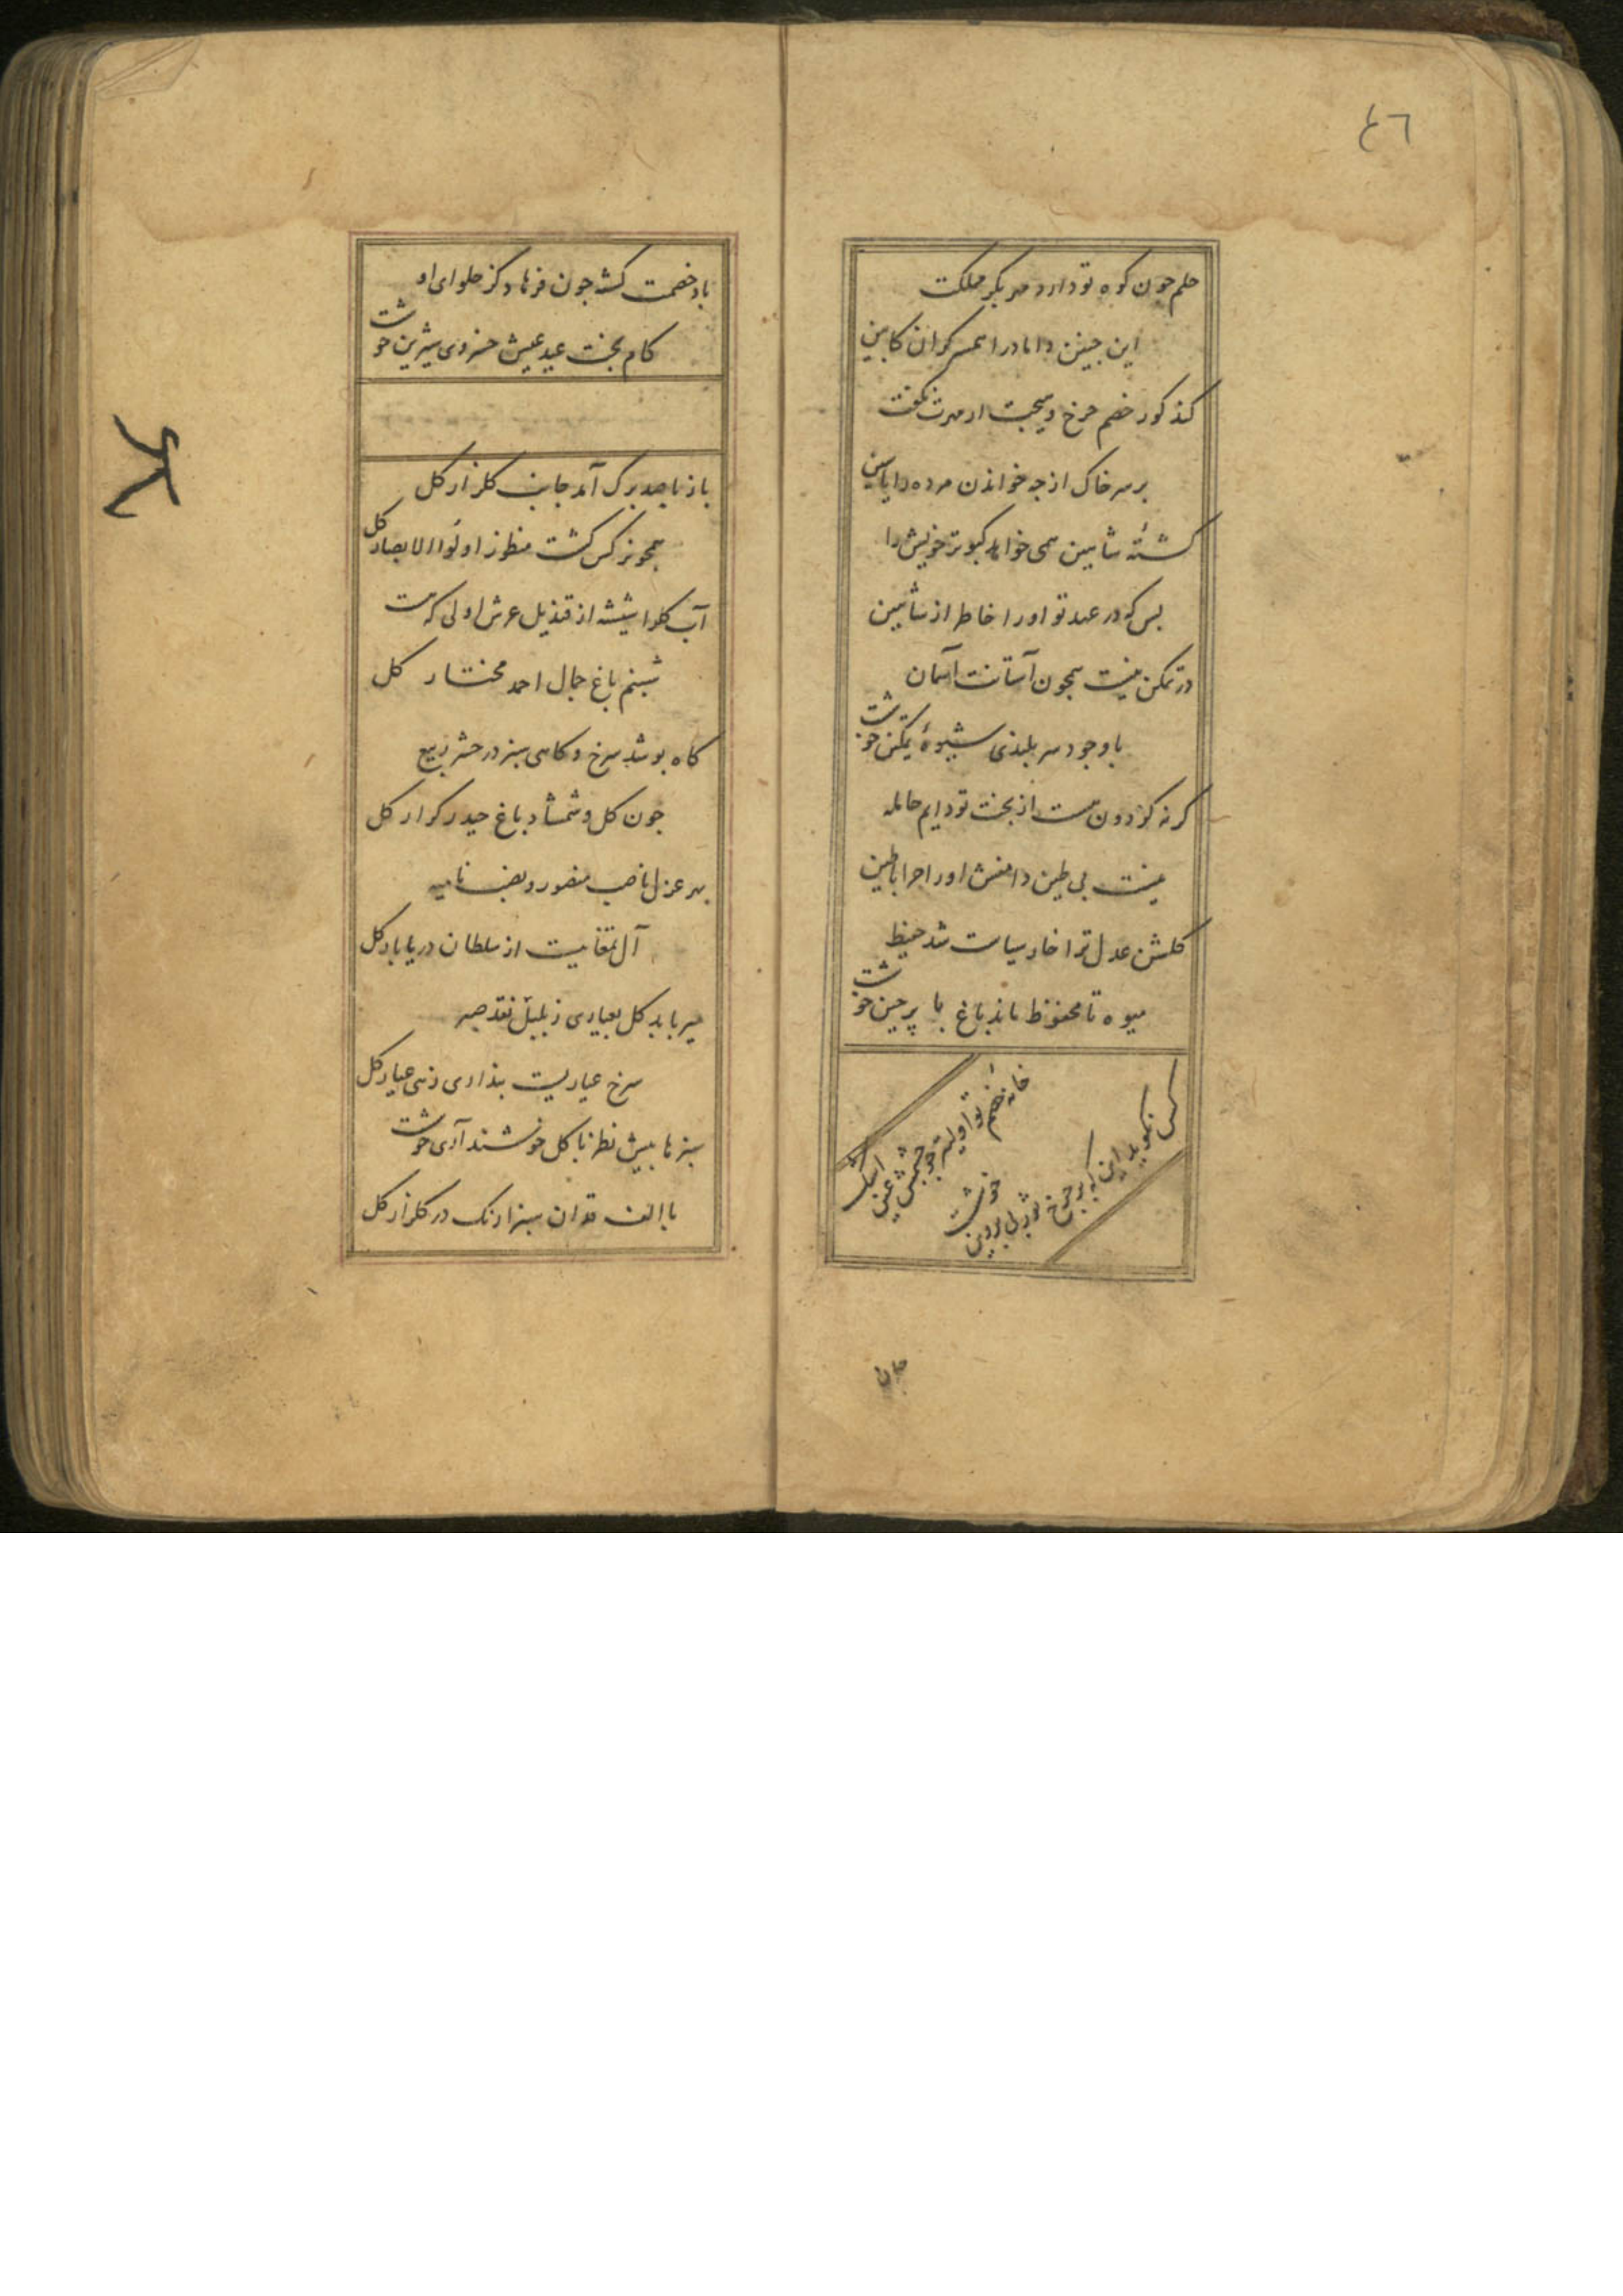 ٤٦
حلم چون کوه تو دارد مهر بکر مملکت
این چنین داماد را همسر کران کابین
کند کور خصم چرخ و هیچت از مهرت نگفت
بر سر خاک از چه خواندن مرده را یاسین
کشتهٔ شاهین همی خواهد کبوتر خویش را
بس که در عهد تو او را خاطر از شاهین
در تمکن نیست همچون آستانت آسمان
با وجود سر بلندی شیوهٔ تمکین خوشت
کرنه کردون هست از بخت تو دایم حامله
نیست بی طین دامنش او را چرا با طین
کلشن عدل ترا خار سیاست شد حفیظ
میوه تا محفوظ ماند باغ با پرچین خوشت
خانهٔ خصم تو اولیتر
چشمش عین اشک
کس نکوید این که بر چرخ ثور بی پروین
خوشت
جان
باد خصمت کشته چون فرهاد کز حلوای او
کام بخت عید عیش خسروی شیرین خوشت
باز با صد برک آمد جانب کلزار کل
همچو نرکس کشت منظور اولوا الابصار کل
آب کل را شیشه از قندیل عرش اولی که هست
شبنم باغ جمال احمد مختار کل
کاه پوشد سرخ و کاهی سبز در حشر ربیع
چون کل و شمشاد باغ حیدر کرار کل
بهر عزل ناصب منصور و نصب نامیه
آل تمغاییست از سلطان دریا بار کل
میرباید کل بعیاری ز بلبل نقد صبر
سرخ عیاریست بنداری زهی عیار کل
سبزها پیش نظر با کل خوشند آری خوشت
با الف قدان سبزارنک در کلزار کل